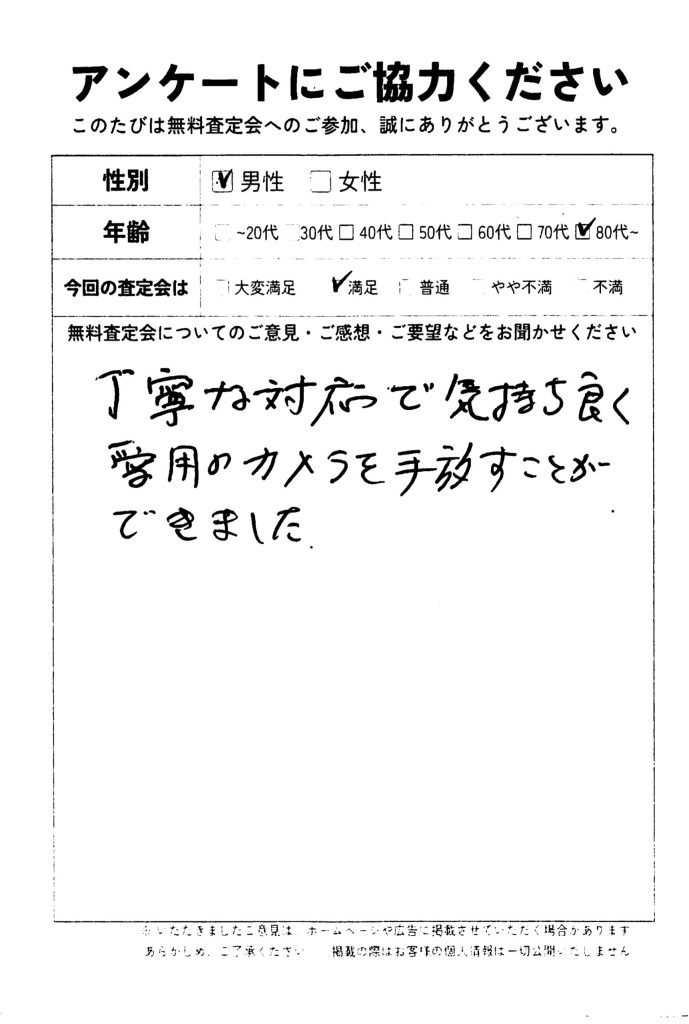 アンケートにご協力ください
このたびは無料査定会へのご参加、誠にありがとうございます。
性別 ☑男性 □女性
年齢 □~20代 □30代 □40代 □50代 □60代 □70代 ☑80代~
今回の査定会は □大変満足 ☑満足 □普通 □やや不満 □不満
無料査定会についてのご意見・ご感想・ご要望などをお聞かせください
丁寧な対応で気持ち良く
愛用のカメラを手放すことが
できました.
※いただきましたご意見は、ホームページや広告に掲載させていただく場合があります
あらかじめ、ご了承ください 掲載の際はお客様の個人情報は一切公開いたしません